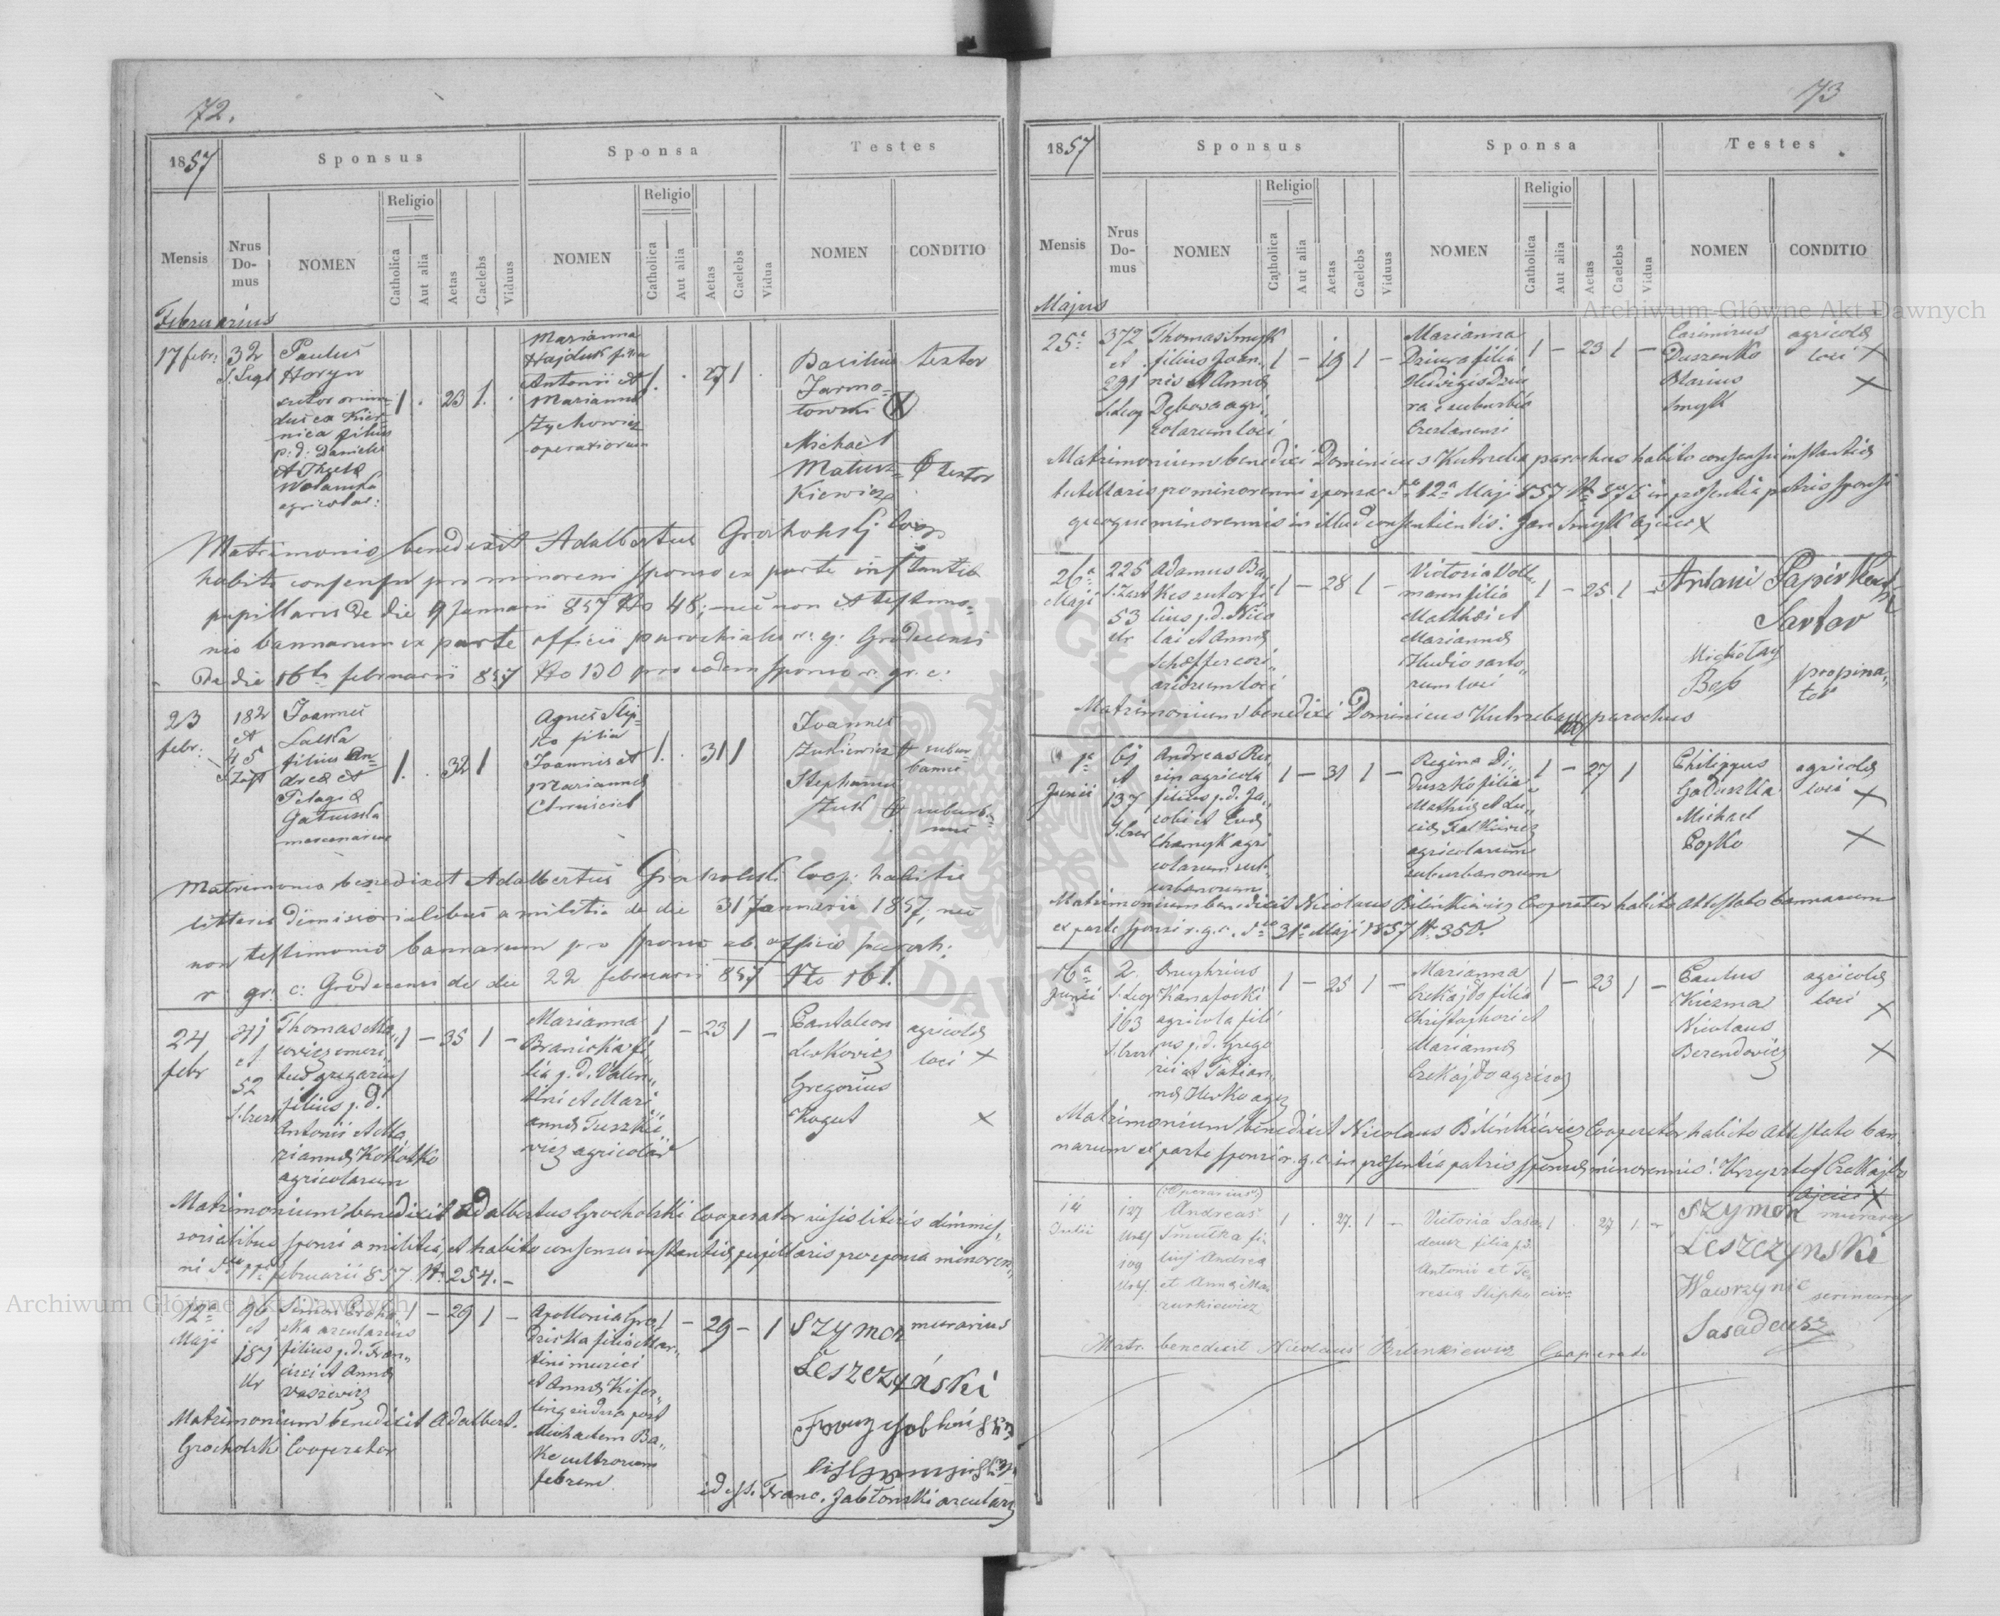 72.
1857
Sponsus
Sponsa
Testes
Mensis
Nrus Do- mus
NOMEN
Religio
Catholica
Aut alia
Aetas
Caelebs
Viduus
NOMEN
Religio
Catholica
Aut alia
Aetas
Caelebs
Vidua
NOMEN
CONDITIO
Februarius
17 febr:
32
Paulus
Horyn
sutor oriun
dus ex Kier
nica filius
p: d: Danielis
agricolar:
1 . 23 1 .
Marianna
Hajduk filia
Antonii et
Marianna
Zychowicz
operariorum
1 . 27 1 .
Basilius textor
Jarmo-
towski
Michael
Matusz-
kiewicz
textor
Matrimonio benedixit Adalbertus Groholskj Coop
habito consensu pro minoreni sponso ex parte instantia
pupillaris de die 9 Januarii 857 No 48; nec non et testimo-
nio bannarum ex parte officii parochialis r. g. Grodecensi
de die 16ta februarii 857 No 130 pro eodem sponso r. gr. c:
23
febr:
182
et
45
Joannes
Lalka
filius An-
drea et
Pelagia
Gatuszka
mercenarius
1 . . 32 1
Agnes Slip-
ko filia
Joannis et
Marianna
1 . . 31 1
Joannes
Zukiewicz
suburbanus
Stephanus
Zuk
Matrimonio benedixit Adalbertus Grohols. Coop: habitis
litteris dimissorialibus a militia de die 31 Januarii 1857, nec
non testimonio bannarum pro sponso ab officio paroch:
r gr: c: Grodecensi de die 22 februarii 857 No 161.
24
febr
et
52
Thomas Ma
emeri
tus gregarius
filius p. d.
Antonii et Ma
riannæ Kokotko
agricolarum
1 — 35 1 —
Marianna
Branicka fi
lia p. d. Valen
tini et Mari
annæ Tuszkie
vicz agricolar
1 — 23 1 —
Pantaleon
Levkovicz
Gregorius
Kogut
agricolæ
loci X
X
Matrimonium benedixit Adalbertus Grocholski Cooperator visis literis dimmis,
sorialibus sponsi a militia, et habito consensu instantiæ pupillaris pro sponsa minoren,
ni februarii 857 N. 254. —
12a
Maji
96
et
187
Ur
Simon
arcularius
filius p. d. Fran
cisci et Anna
1 — 29 1 —
Apollonia Gro
dzicka filia Mar
tini murici
et Anna Kifer
ling vidua post
Michaelem Ba
ke cultrorum
fabrum
1 — 29 — 1
Szymon murarius
Leszczyński
id est. Franc. Jabłonski arcular
Matrimonium benedixit Adalbert.
Grocholski Cooperator
73
1857
Sponsus
Sponsa
Testes
Mensis
Nrus Do- mus
NOMEN
Religio
Catholica
Aut alia
Aetas
Caelebs
Viduus
NOMEN
Religio
Catholica
Aut alia
Aetas
Caelebs
Vidua
NOMEN
CONDITIO
Majus
25a
372
et
291
S. Leop
Thomas Smyk
filius Joan
nis et Annæ
Dębosa agri
colarum loci
1 — 19 1 —
Marianna
Dziura filia
Hedvigis Dziu
ra e suburbio
1 — 23 1 —
Casimirus
Duszenko
Blasius
Smyk
agricolæ
loci X
X
Matrimonium benedixi Dominicus Kutrzeba parochus habito consensu instantiæ
tutellaris pro minorenni sponsa dto 12a Maji 857 N 875 in præsentia patris sponsi
quoque minorennis in illud consentientis: Jan Smyk ojciec X
26a
Maji
225
53
Ur
Adamus Ba
kes sutor fi
lius p. d. Nico
lai et Annæ
Schæffer cori
ariorum loci
1 — 28 1 —
Victoria Voll
mann filia
Matthæi et
Mariannæ
Hudio sarto
rum loci
1 — 25 1 —
Antoni
Sartor
Mikołay
propina
tor
Matrimonium benedixi Dominicus Kutrzeba parochus
1a
Junii
61
et
137
Andreas Res
zin agricola
filius p. d. Ja
cobi et Evæ
Charnyk agri
colarum sub
urbanorum
1 — 31 1 —
Regina Di
duszko filia
Mathiæ et Lu
ciæ Falkiewicz
agricolarum
suburbanorum
1 — 27 1
Philippus
Gaduszka
Michael
Popko
agricolæ
loci X
X
Matrimonium benedixit Nicolaus Bilinkiewicz Cooperator habito attestato bannarum
ex parte sponsi r. g. c. dto 31a Maji 1857 N. 350.
16a
Junii
2.
S. Leop
163
Onuphrius
Kanafocki
agricola fili
us p. d. Grego
rii et Tatian
næ Hirko agr
1 — 25 1 —
Marianna
Czekajło filia
Christophori et
Mariannæ
Czekajło agricol
1 — 23 1 —
Paulus
Kiczma
Nicolaus
Berendovicz
agricolæ
loci
X
X
Matrimonium benedixit Nicolaus Bilinkiewicz Cooperator habito attestato ban
narum ex parte sponsi r. g. c. in præsentia patris sponsæ minorennis: Krzysztof Czekajło
ojciec X
14
Julii
127
Urbs
109
Urbs
(: Operarius :)
Andreas
Smutka fi
lius Andrea
et Anna Ma
zurkiewicz
1 . 27. 1 —
Victoria Sasa
deusz filia p. d.
Antonii et Te
resia Slipko civ
1 . 27 1 —
Szymon murarius
Leszczynski
Wawrzynic
Sasadeusz
Matr. benedixit Nicolaus Bilinkiewicz Cooperator
Archiwum Główne Akt Dawnych
Archiwum Główne Akt Dawnych
ARCHIWUM GŁÓWNE AKT DAWNYCH